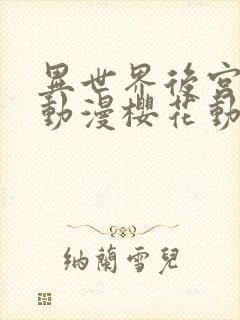 異世界後宮
動漫櫻花動
納蘭雪兒